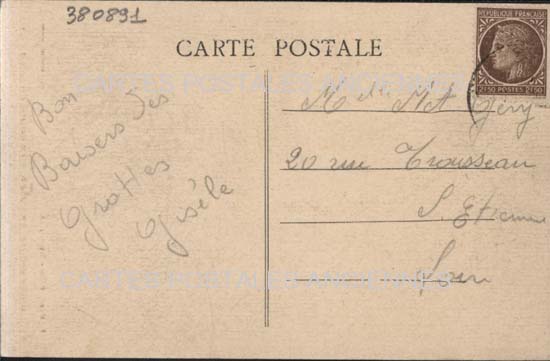 380891
CARTE POSTALE
REPUBLIQUE FRANÇAISE
2F50 POSTES 2F50
CARTES POSTALES ANCIENNES
Bon
Baisers des
Grottes
Gisèle
M et M
20 rue Trousseau
S. Etienne
CARTES POSTALES ANCIENNES